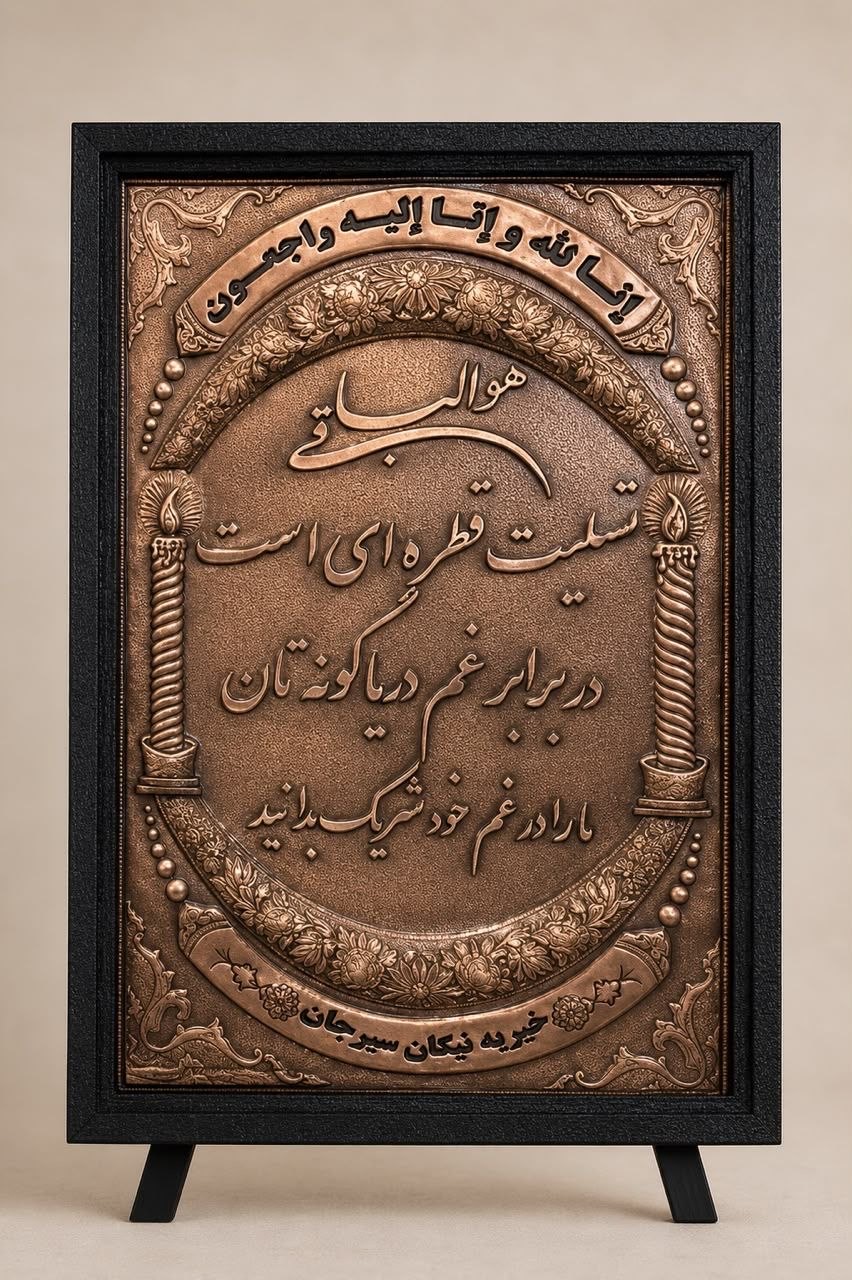 إنا لله و إنا إليه واجعون
هوالباقی
تسلیت قطره ای است
در برابر غم دریا گونه تان
ما را در غم خود شریک بدانید
خیریه نیکان سیرجان